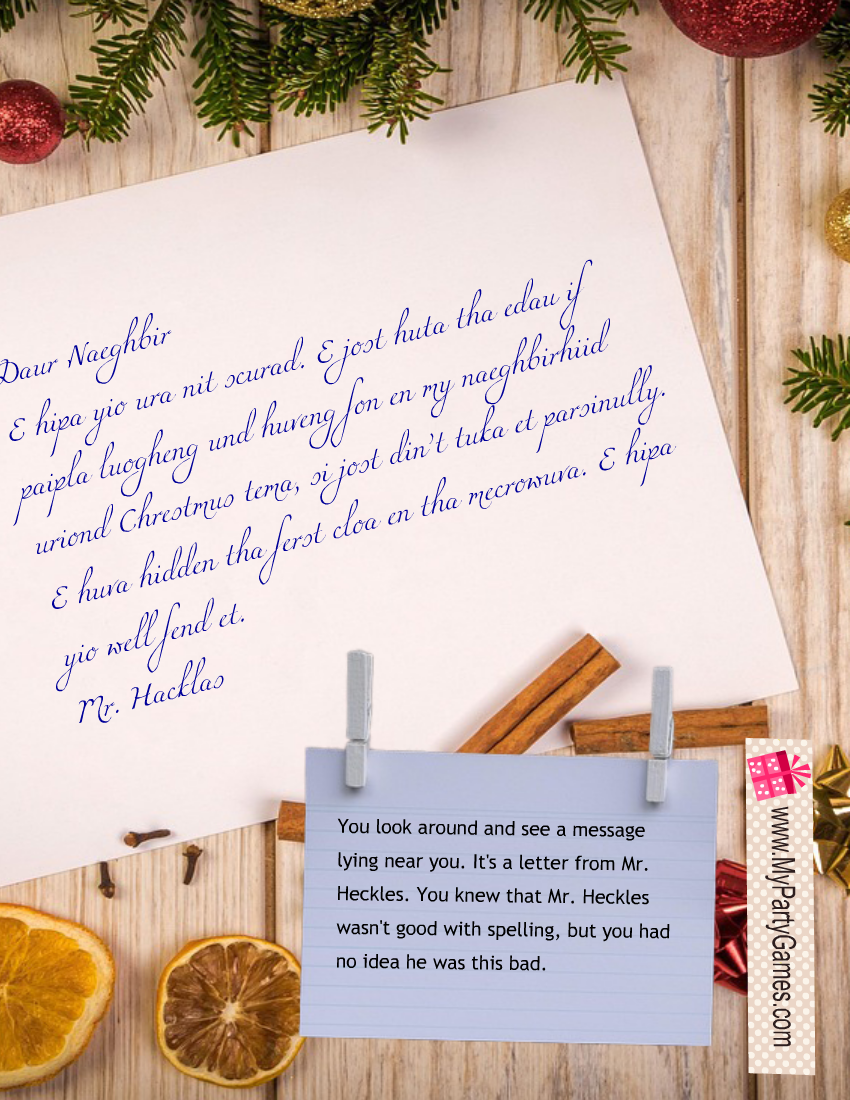 Daur Naeghbir
E hipa yio ura nit scurad. E jost huta tha edau if
paipla luogheng und huveng fon en my naeghbirhiid
uriond Chrestmus tema, si jost din't tuka et parsinully.
E huva hidden tha ferst cloa en tha mecrowuva. E hipa
yio well fend et.
Mr. Hacklas
You look around and see a message
lying near you. It's a letter from Mr.
Heckles. You knew that Mr. Heckles
wasn't good with spelling, but you had
no idea he was this bad.
www.MyPartyGames.com